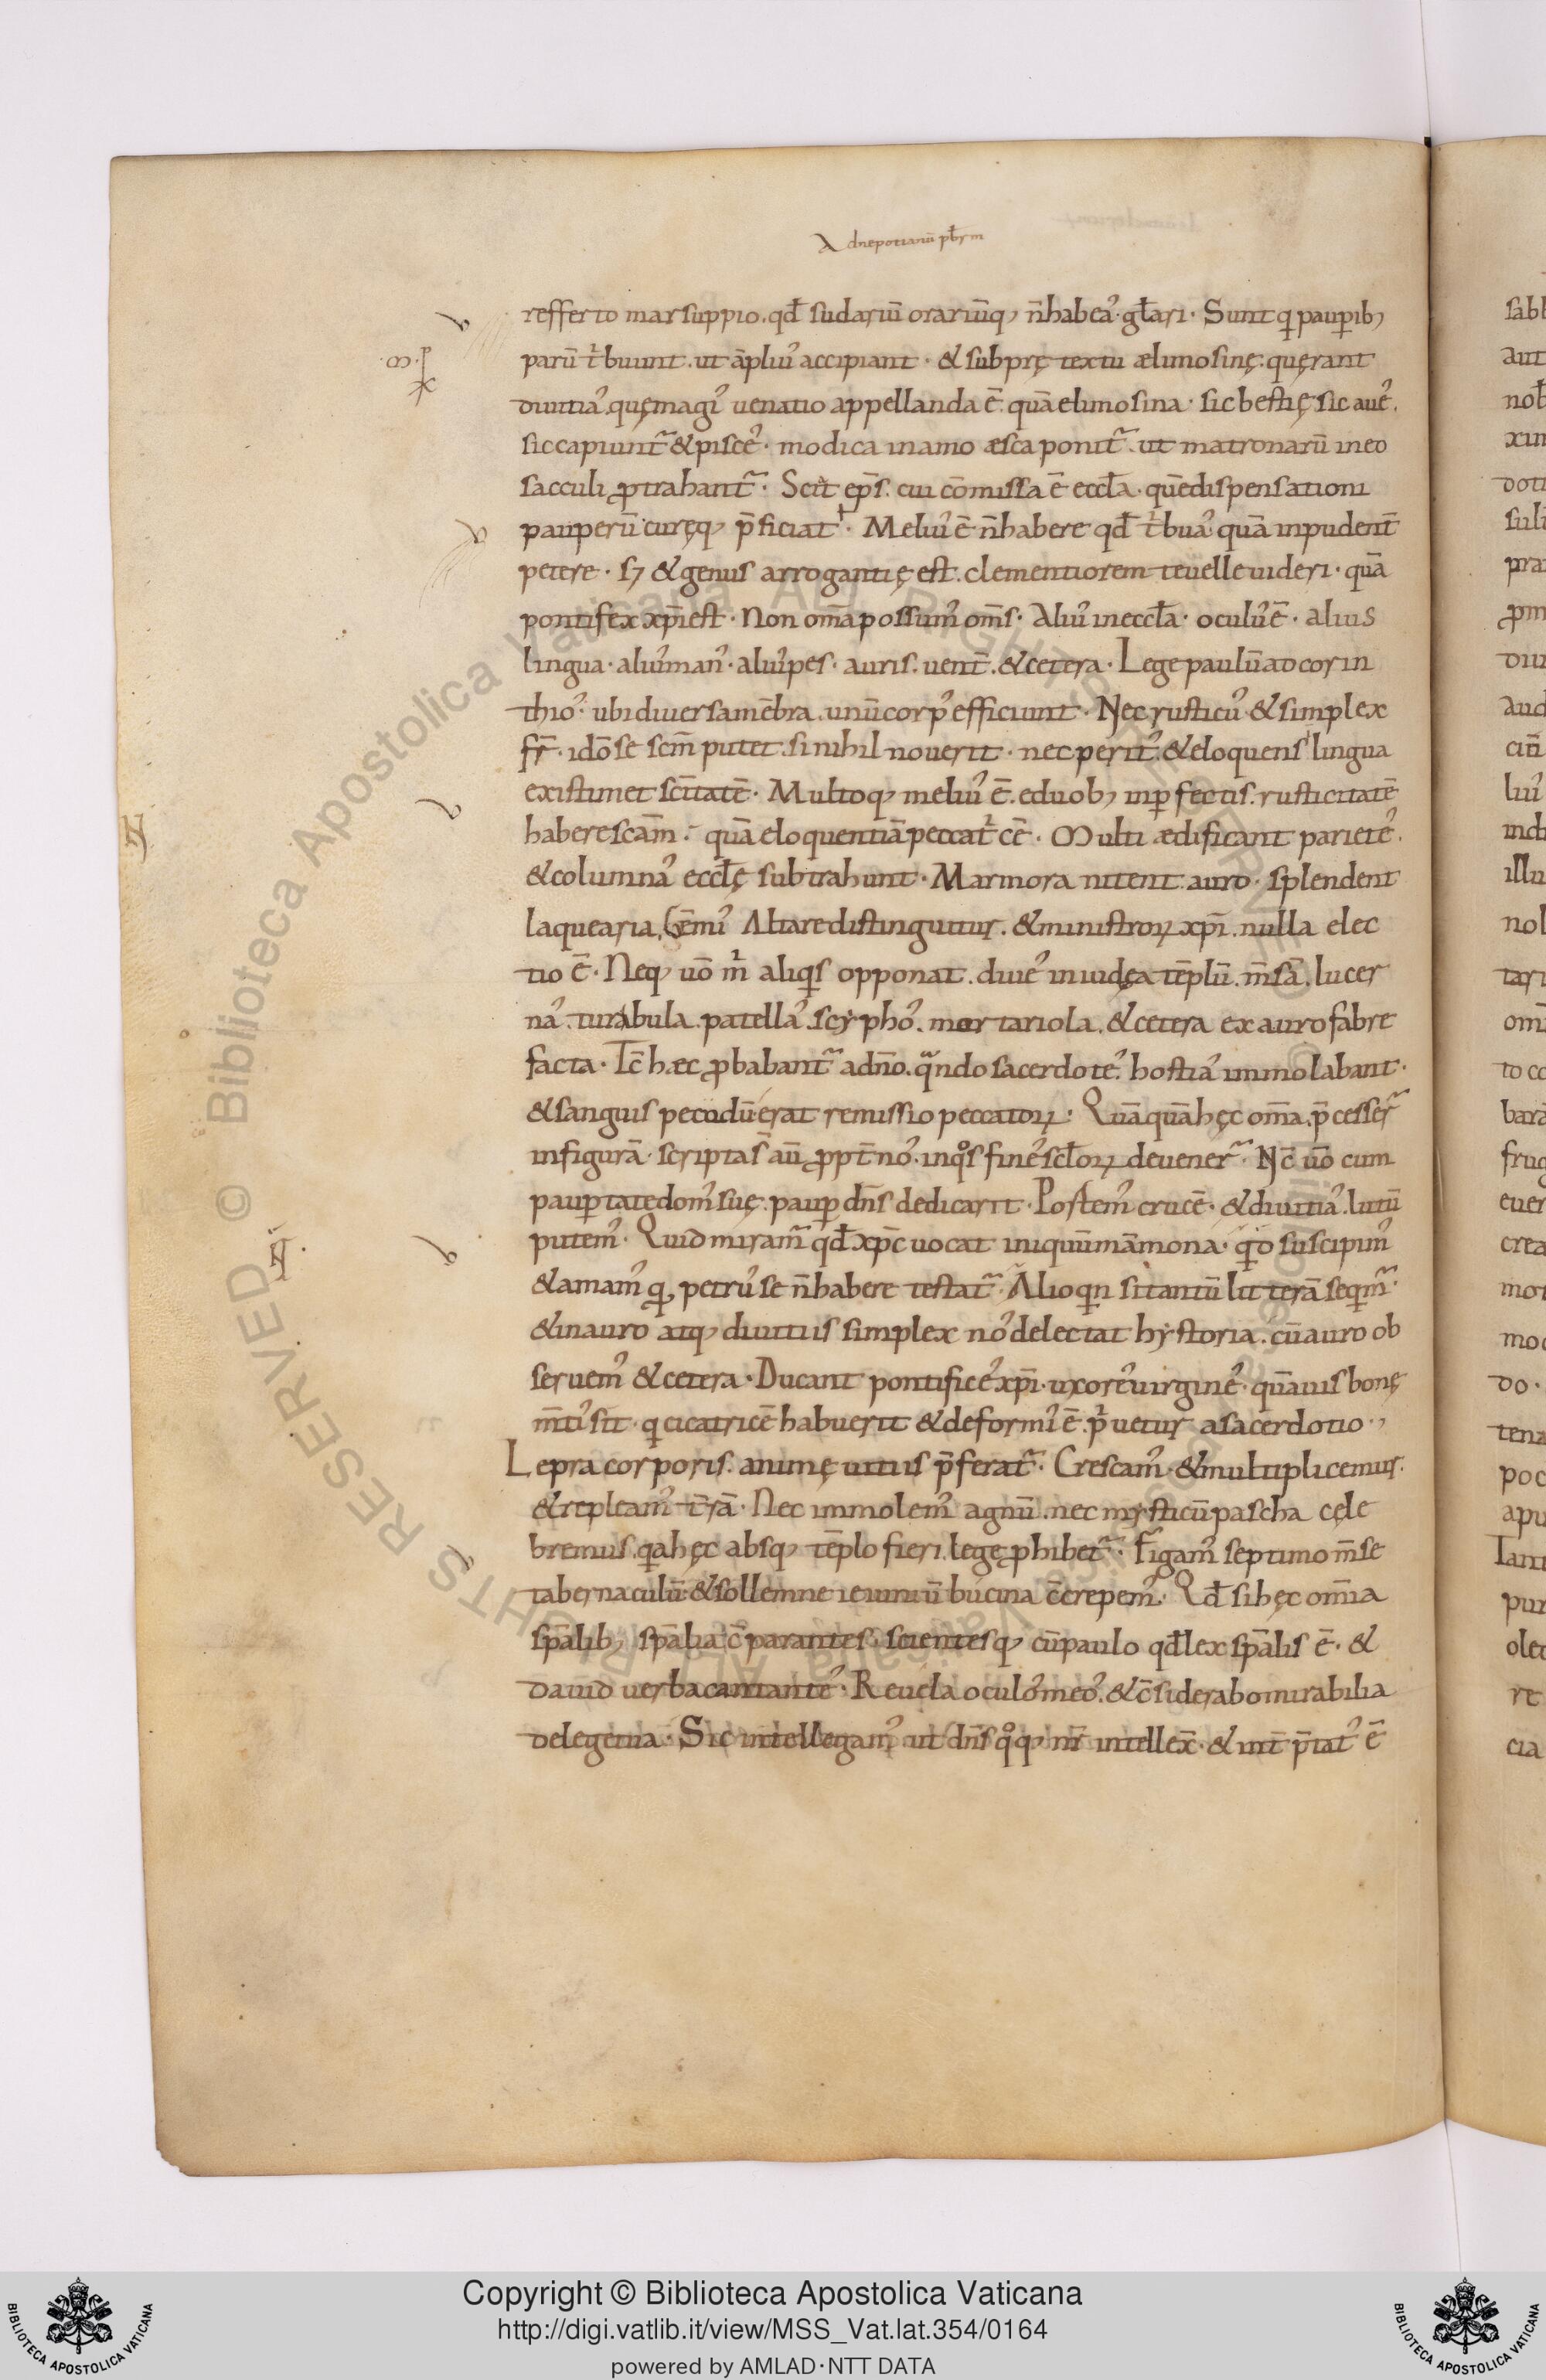 Ad nepotianū pbr̄m
refferto marsuppio. qđ sudariū orariūq; n̄ habeas. głari. Sunt q paup̱ib;
parū tͥbuunt. ut āplius accipiant. & sub prętextu ælimosinę. quęrant
diuitias. quę magis uenatio appellanda ē. quā elimosina. sic bestię sic aues.
sic capiunt̃ & pisces. modica in amo æsca ponit̃. ut matronarū in eo
sacculi ꝓtrahant̃. Scit ep̄s. cui cōmissa ē eccła. quē dispensationi
pauperū. curęq; p̄ficiat. Melius ē n̄ habere qđ tͥbuas. quā inpudent̄
petere. sꝫ & genus arrogantię est. clementiorem te uelle uideri. quā
pontifex xp̄i est. Non om̄a possumus om̄s. Alius in eccła. oculus ē. alius
lingua. alius manus. alius pes. auris. uent̄. & cetera. Lege paulū ad corin
thios. ubi diuersa mēbra. unū corpus efficiunt. Nec rusticus & simplex
fr̄. idō se scm̄ putet. si nihil nouerit. nec peritus. & eloquens lingua
existimet sc̄itatē. Multoq; melius ē. e duob; inp̱fectis. rusticitatē
habere scām. quā eloquentiā peccatͥcē. Multi ædificant parietes.
& columnas eccłę subtrahunt. Marmora nitent. auro. splendent
laquearia. Gēmis Altare distinguitur. & ministroꝝ xp̄i. nulla elec
tio ē. Neq; uō mͥ aliqͥs opponat. diues in iudęa tēplū. m̄sā. lucer
nas. turabula. patellas. scyphos. mortariola. & cetera ex auro fabre
facta. Tc̄ hæc ꝓbabant̃ a dn̄o. qͣndo sacerdotes. hostias immolabant.
& sanguis pecudū erat remissio peccatoꝝ. Quāquā hęc om̄a. p̄cesser̃
in figurā. scripta s̄ aū ꝓpt̄ nos. in qͦs fines scłoꝝ deuener̃. Nc̄ uō cum
paup̱tate domus suę. paup̱ dn̄s dedicarit. Portemus crucē. & diuitias. lutū
putemus. Quid miram̃ qđ xp̄c uocat iniquū māmona. qͥd suscipimus
& amamus q, petrus se n̄ habere testat̃. Alioqͥn si tantū litterā seqͥm̃.
& in auro atq; diuitiis simplex nos delectat hystoria. cū auro ob
seruemus & cetera. Ducant pontifices xp̄i. uxores uirgines. quāuis bonę
m̄tis sit. q cicatricē habuerit & deformis ē. pͥuetur a sacerdotio.
Lepra corporis. animę uitiis p̄ferat̃. Crescamus. & multiplicemus.
& repleamus t̄rā. Nec immolemus agnū. nec mysticū pascha cęle
bremus. qͥa hęc absq; tēplo fieri. lege ꝓhibet̃. Figamus septimo m̄se
tabernaculū. & sollemne ieiuniū bucina c̄crepemus. Qđ si hęc om̄ia
sp̄alib; sp̄alia c̄parantes. scientesq; cū paulo qđ lex sp̄alis ē. &
dauid uerba cantantes. Reuela oculos meos. & c̄siderabo mirabilia
de lege tua. Sic intellegamus ut dn̄s qͦq; nr̄ intellex̄. & int̄p̄tatus ē